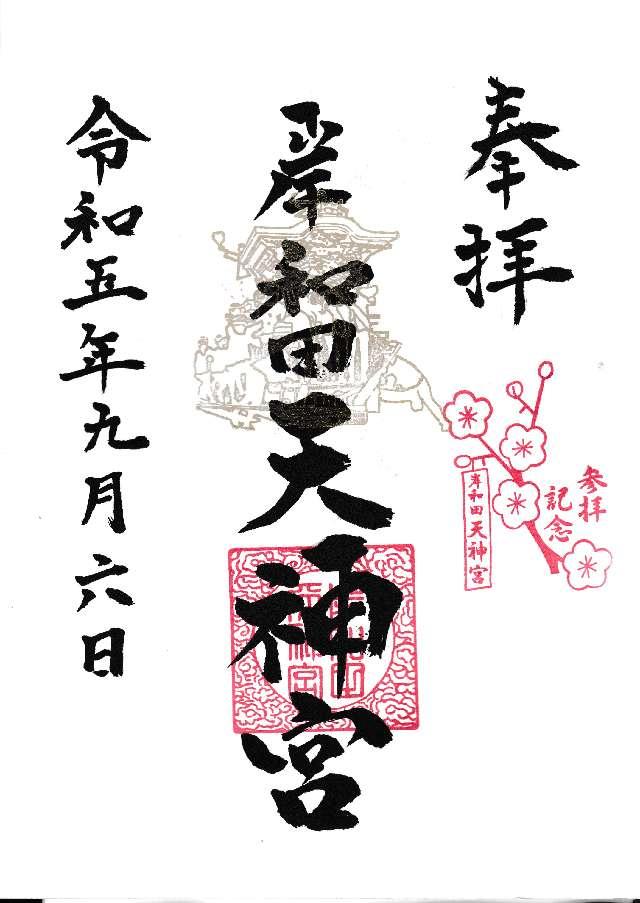 奉拝
参拝
記念
岸和田天神宮
岸和田天神宮
令和五年九月六日